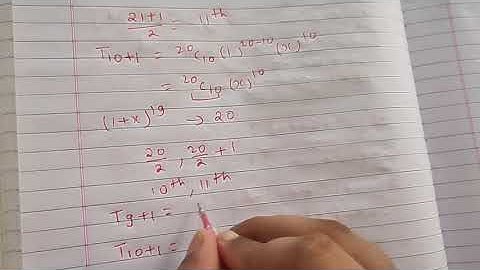 21+1/2 = 11th
T10+1 = 20C10 (1)^20-10 (x)^10
= 20C10 (x)^10
(1+x)^19 → 20
20/2 , 20/2 + 1
10th, 11th
T9+1 =
T10+1 =